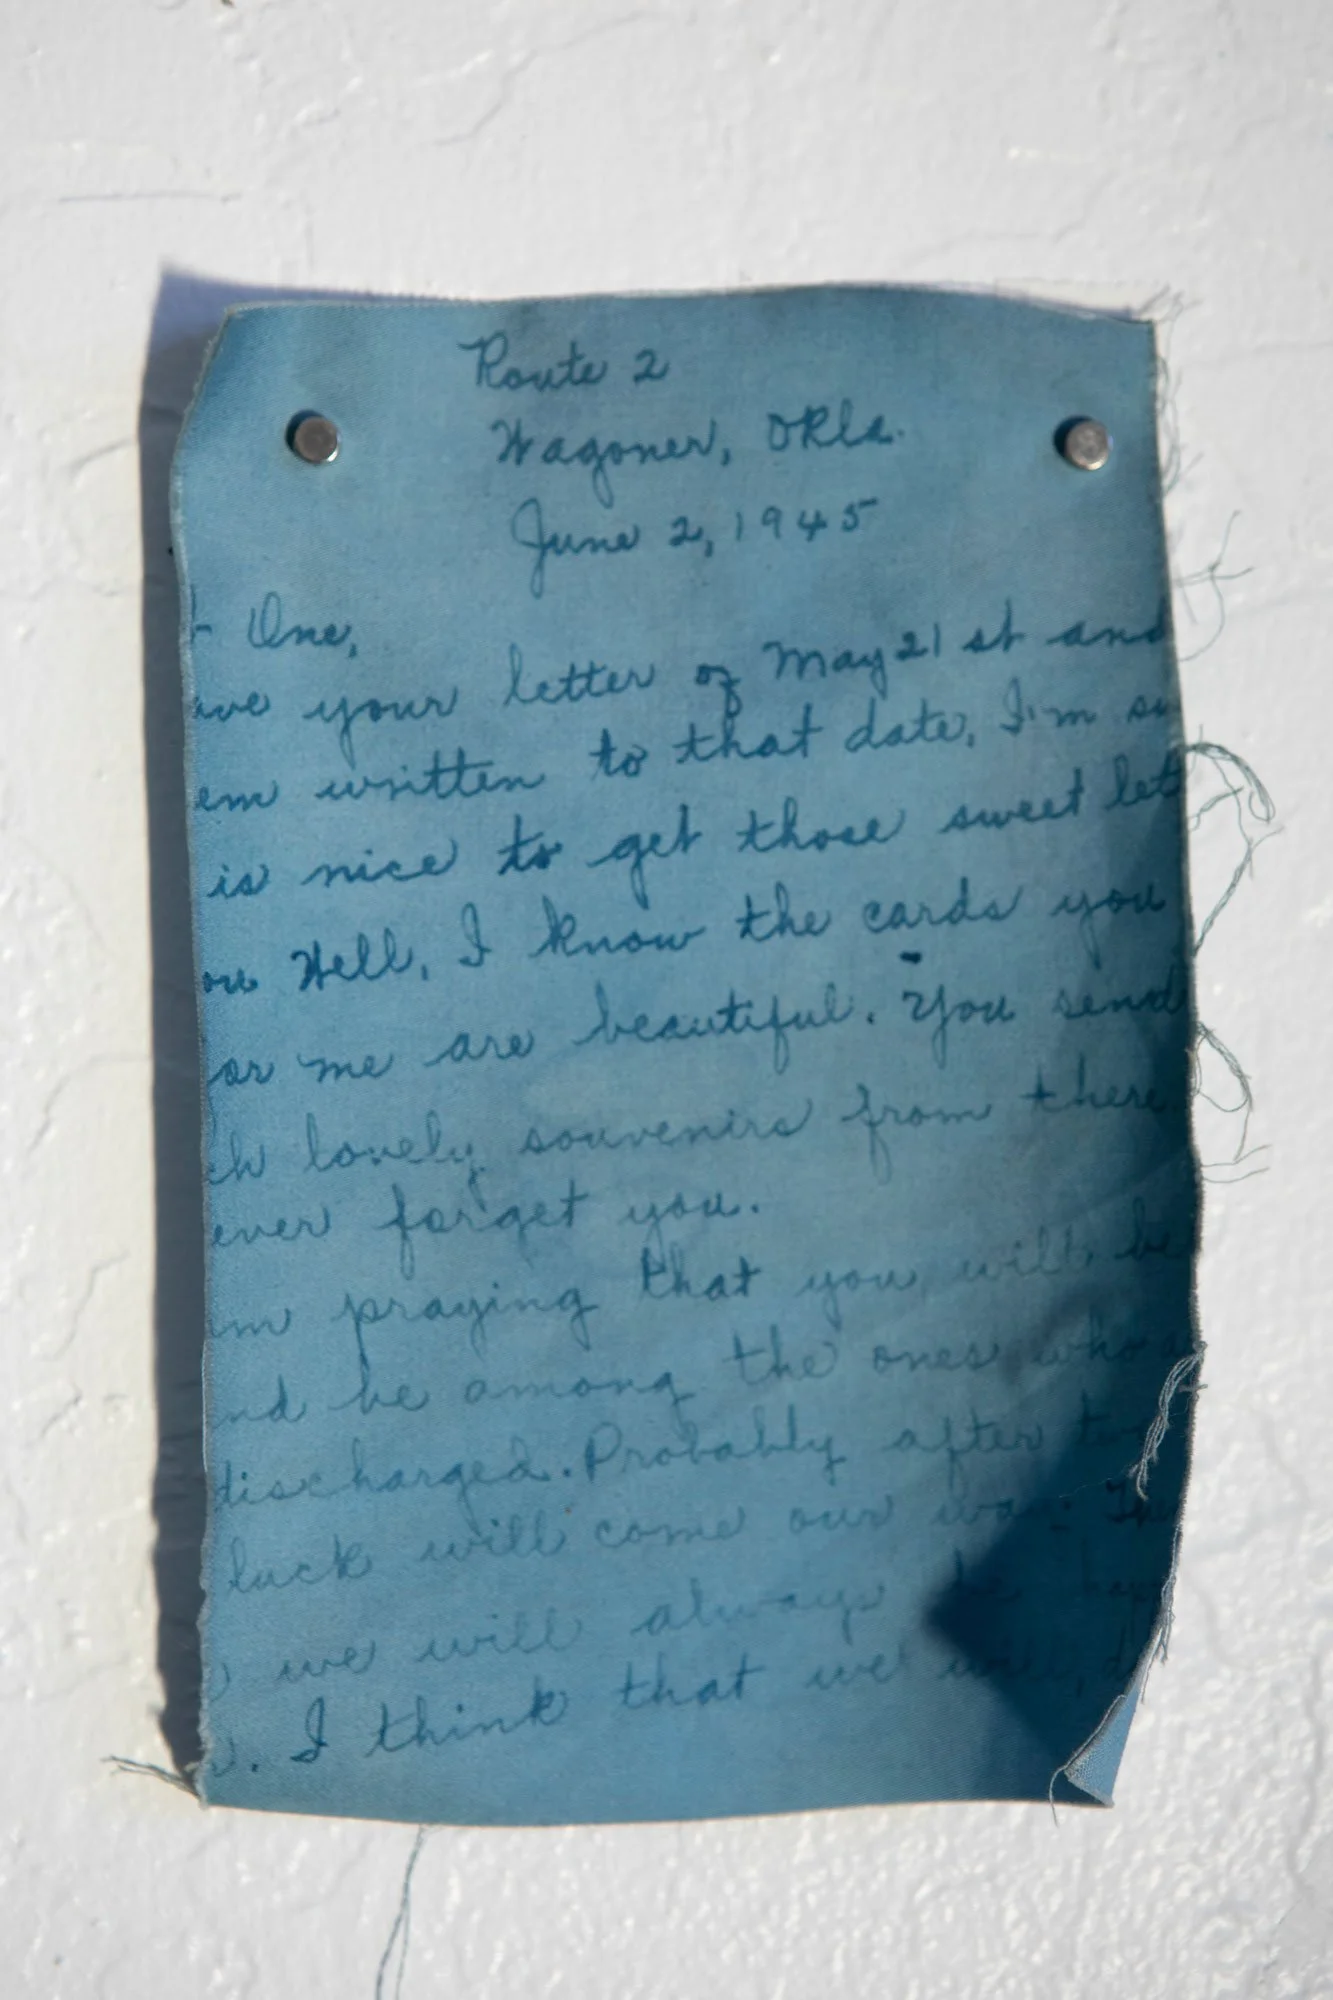 Route 2
Wagoner, Okla.
June 2, 1945
t One,
ave your letter of May 21 st and
em written to that date. I'm su
is nice to get those sweet let
ou Well, I know the cards you
or me are beautiful. You send
ch lovely souvenirs from there.
ever forget you.
am praying that you will be
nd be among the ones who a
discharged. Probably after
luck will come our way.
we will always be
. I think that we